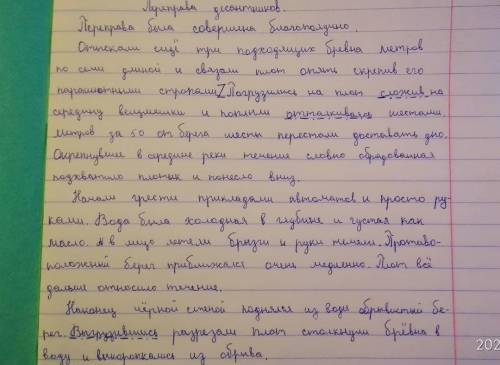 Переправа десантников.
Переправа была совершена благополучно.
Отыскали ещё три подходящих бревна метров
по семи длиной и связали плот опять скрепив его
парашютными стропами Z Погрузились на плот сложив на
середину вещмешки и поплыли отталкиваясь шестами.
Метров за 50 от берега шесты перестали доставать дно.
Окрепнувшее в середине реки течение словно обрадованная
подхватило плотик и понесло вниз.
Начали грести прикладами автоматов и просто ру-
ками. Вода была холодная в глубине и густая как
масло. А в лицо летели брызги и руки немели. Противо-
положный берег приближался очень медленно. Плот всё
дальше относило течение.
Наконец чёрной стеной поднялся из воды обрывистый бе-
рег. Выгрузившись разрезали плот столкнули брёвна в
воду и выкорапкались из обрыва.
202